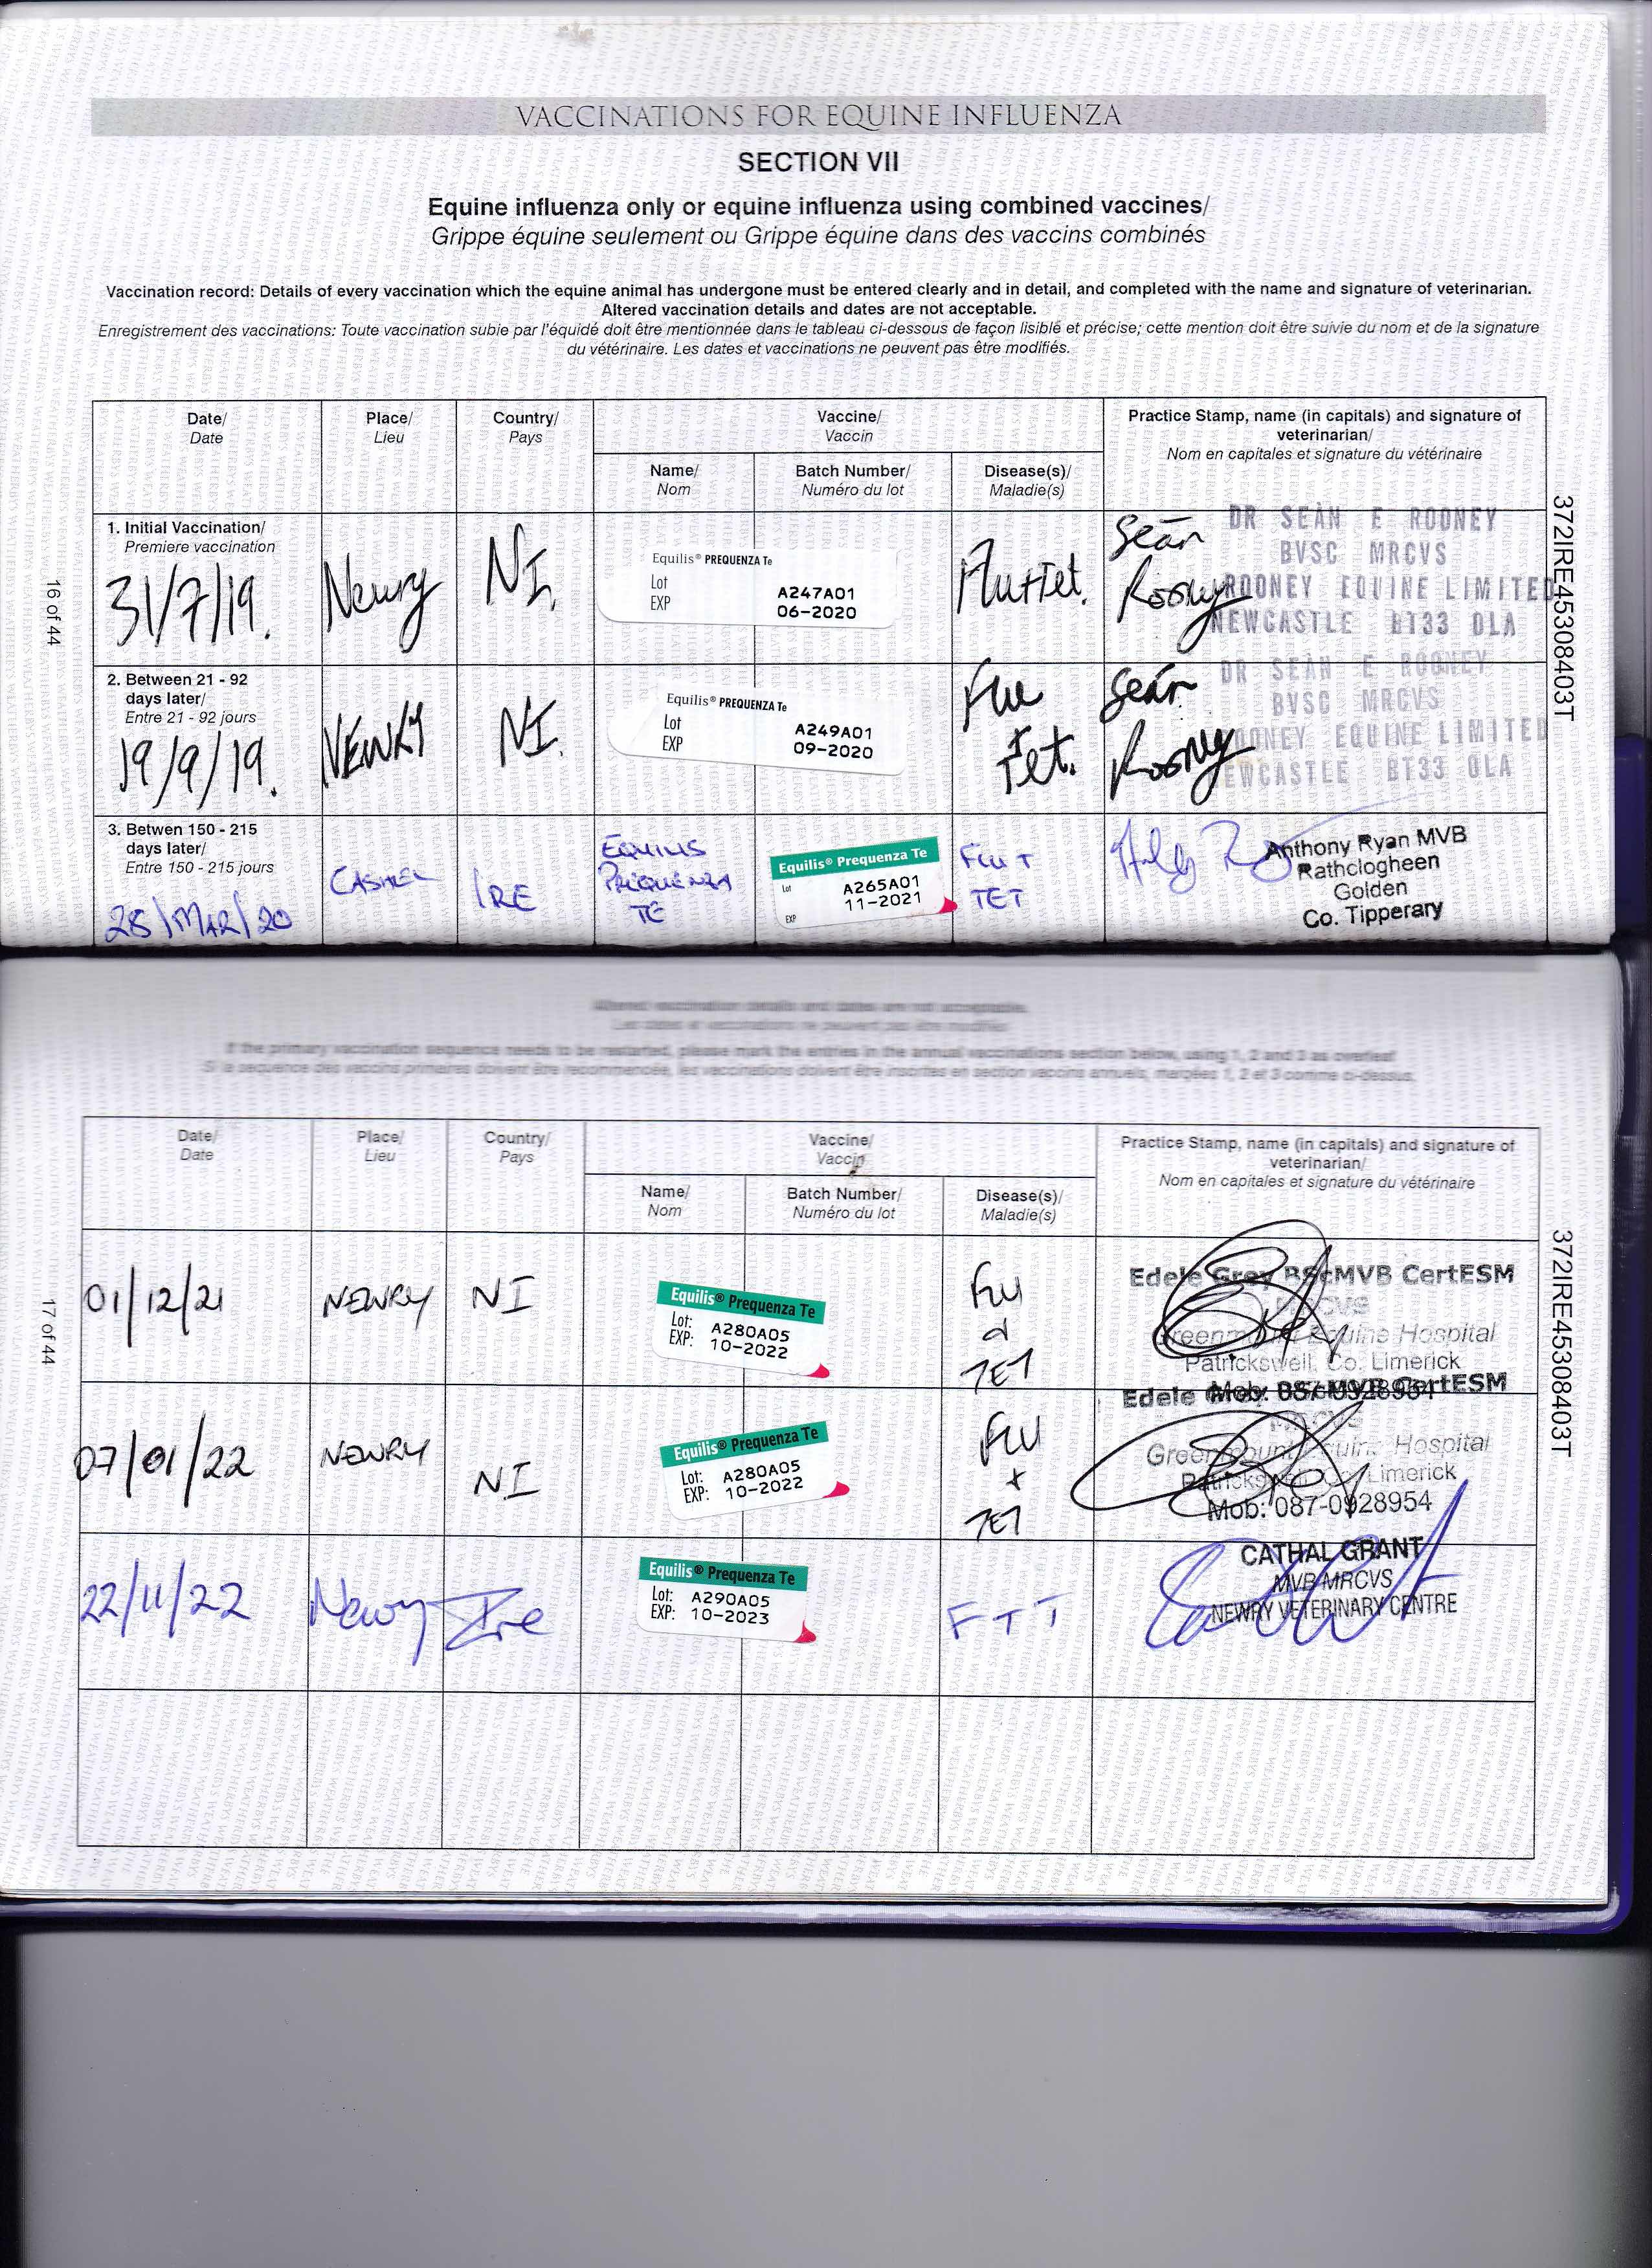 VACCINATIONS FOR EQUINE INFLUENZA
SECTION VII
Equine influenza only or equine influenza using combined vaccines/
Grippe équine seulement ou Grippe équine dans des vaccins combinés
Vaccination record: Details of every vaccination which the equine animal has undergone must be entered clearly and in detail, and completed with the name and signature of veterinarian.
Altered vaccination details and dates are not acceptable.
Enregistrement des vaccinations: Toute vaccination subie par l'équidé doit être mentionnée dans le tableau ci-dessous de façon lisiblé et précise; cette mention doit être suivie du nom et de la signature
du vétérinaire. Les dates et vaccinations ne peuvent pas être modifiés.
Date/
Date
Place/
Lieu
Country/
Pays
Vaccine/
Vaccin
Name/
Nom
Batch Number/
Numéro du lot
Disease(s)/
Maladie(s)
Practice Stamp, name (in capitals) and signature of
veterinarian/
Nom en capitales et signature du vétérinaire
1. Initial Vaccination/
Premiere vaccination
31/7/19.
Newry
NI.
Equilis® PREQUENZA Te
Lot A247A01
EXP 06-2020
Flu+Tet.
Seán
Rooney
DR SEÀN E ROONEY
BVSC MRCVS
ROONEY EQUINE LIMITED
NEWCASTLE BT33 0LA
2. Between 21 - 92
days later/
Entre 21 - 92 jours
19/9/19.
NEWRY
NI.
Equilis® PREQUENZA Te
Lot A249A01
EXP 09-2020
Flu
+
Tet.
Seán
Rooney
DR SEÀN E ROONEY
BVSC MRCVS
ROONEY EQUINE LIMITED
NEWCASTLE BT33 0LA
3. Betwen 150 - 215
days later/
Entre 150 - 215 jours
28/MAR/20
CASHEL
IRE
EQUILIS
PREQUENZA
TE
Equilis® Prequenza Te
Lot A265A01
11-2021
EXP
FLU +
TET
Anthony Ryan MVB
Rathclogheen
Golden
Co. Tipperary
16 of 44
372IRE45308403T
Altered vaccination details and dates are not acceptable.
Les dates et vaccinations ne peuvent pas être modifiés
If the primary vaccination sequence needs to be restarted, please mark the entries in the annual vaccinations section below, using 1, 2 and 3 as overleaf
Si la sequence des vaccins primaires doivent être recommencée, les vaccinations doivent être inscrites en section vaccins annuels, marqées 1, 2 et 3 comme ci-dessus.
Date/
Date
Place/
Lieu
Country/
Pays
Vaccine/
Vaccin
Name/
Nom
Batch Number/
Numéro du lot
Disease(s)/
Maladie(s)
Practice Stamp, name (in capitals) and signature of
veterinarian/
Nom en capitales et signature du vétérinaire
01/12/21
NEWRY
NI
Equilis® Prequenza Te
Lot: A280A05
EXP: 10-2022
FLU
TET
Edele Grey BScMVB CertESM
MRCVS
Greenmount Equine Hospital
Patrickswell, Co. Limerick
Mob: 087-0928954
07/01/22
NEWRY
NI
Equilis® Prequenza Te
Lot: A280A05
EXP: 10-2022
FLU
+
TET
Edele Grey BScMVB CertESM
MRCVS
Greenmount Equine Hospital
Patrickswell, Co. Limerick
Mob: 087-0928954
22/11/22
Newry
Ire
Equilis® Prequenza Te
Lot: A290A05
EXP: 10-2023
FTT
CATHAL GRANT
MVB MRCVS
NEWRY VETERINARY CENTRE
17 of 44
372IRE45308403T